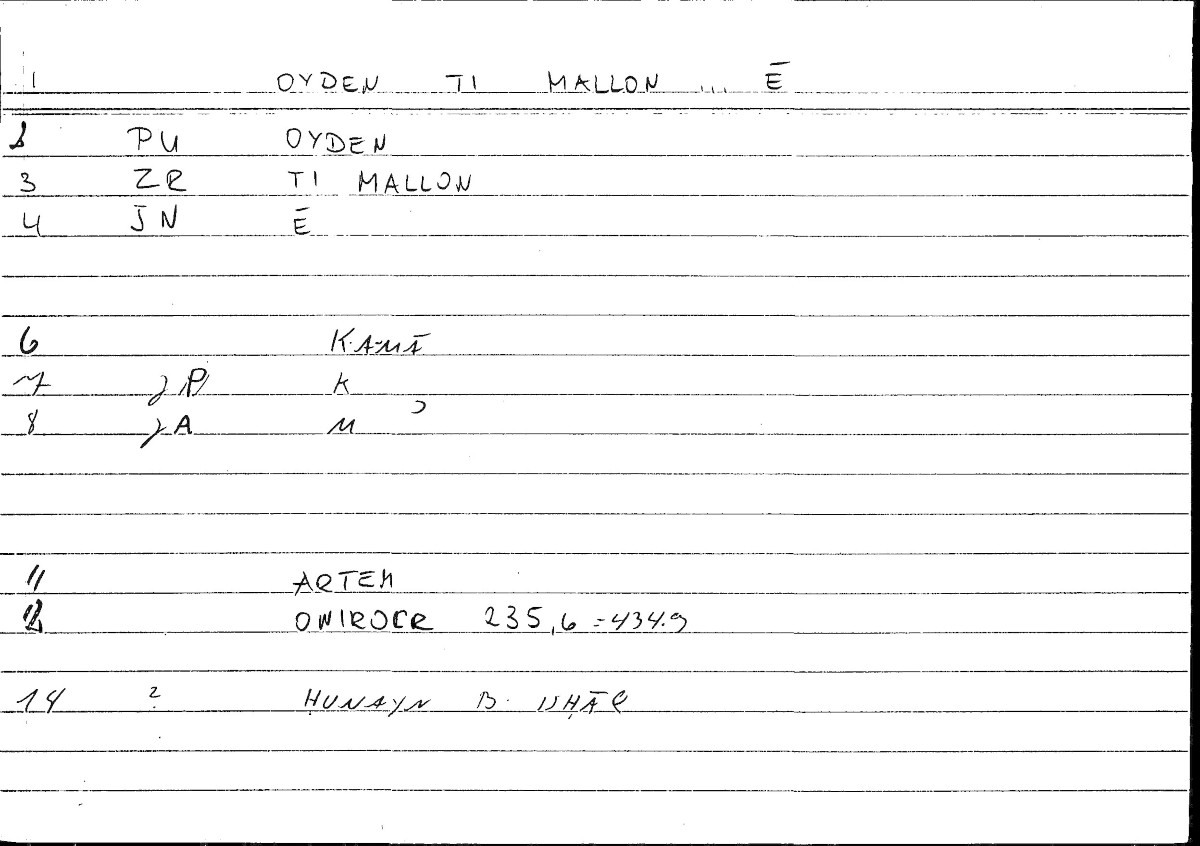 1 OYDEN TI MALLON ... Ē
2 PU OYDEN
3 ZR TI MALLON
4 JN Ē
6 KAMĀ
7 JP K
8 JA M
11 ARTEM
12 ONIROCR 235,6 = 434.9
14 ? ḤUNAYN B. ISḤĀQ